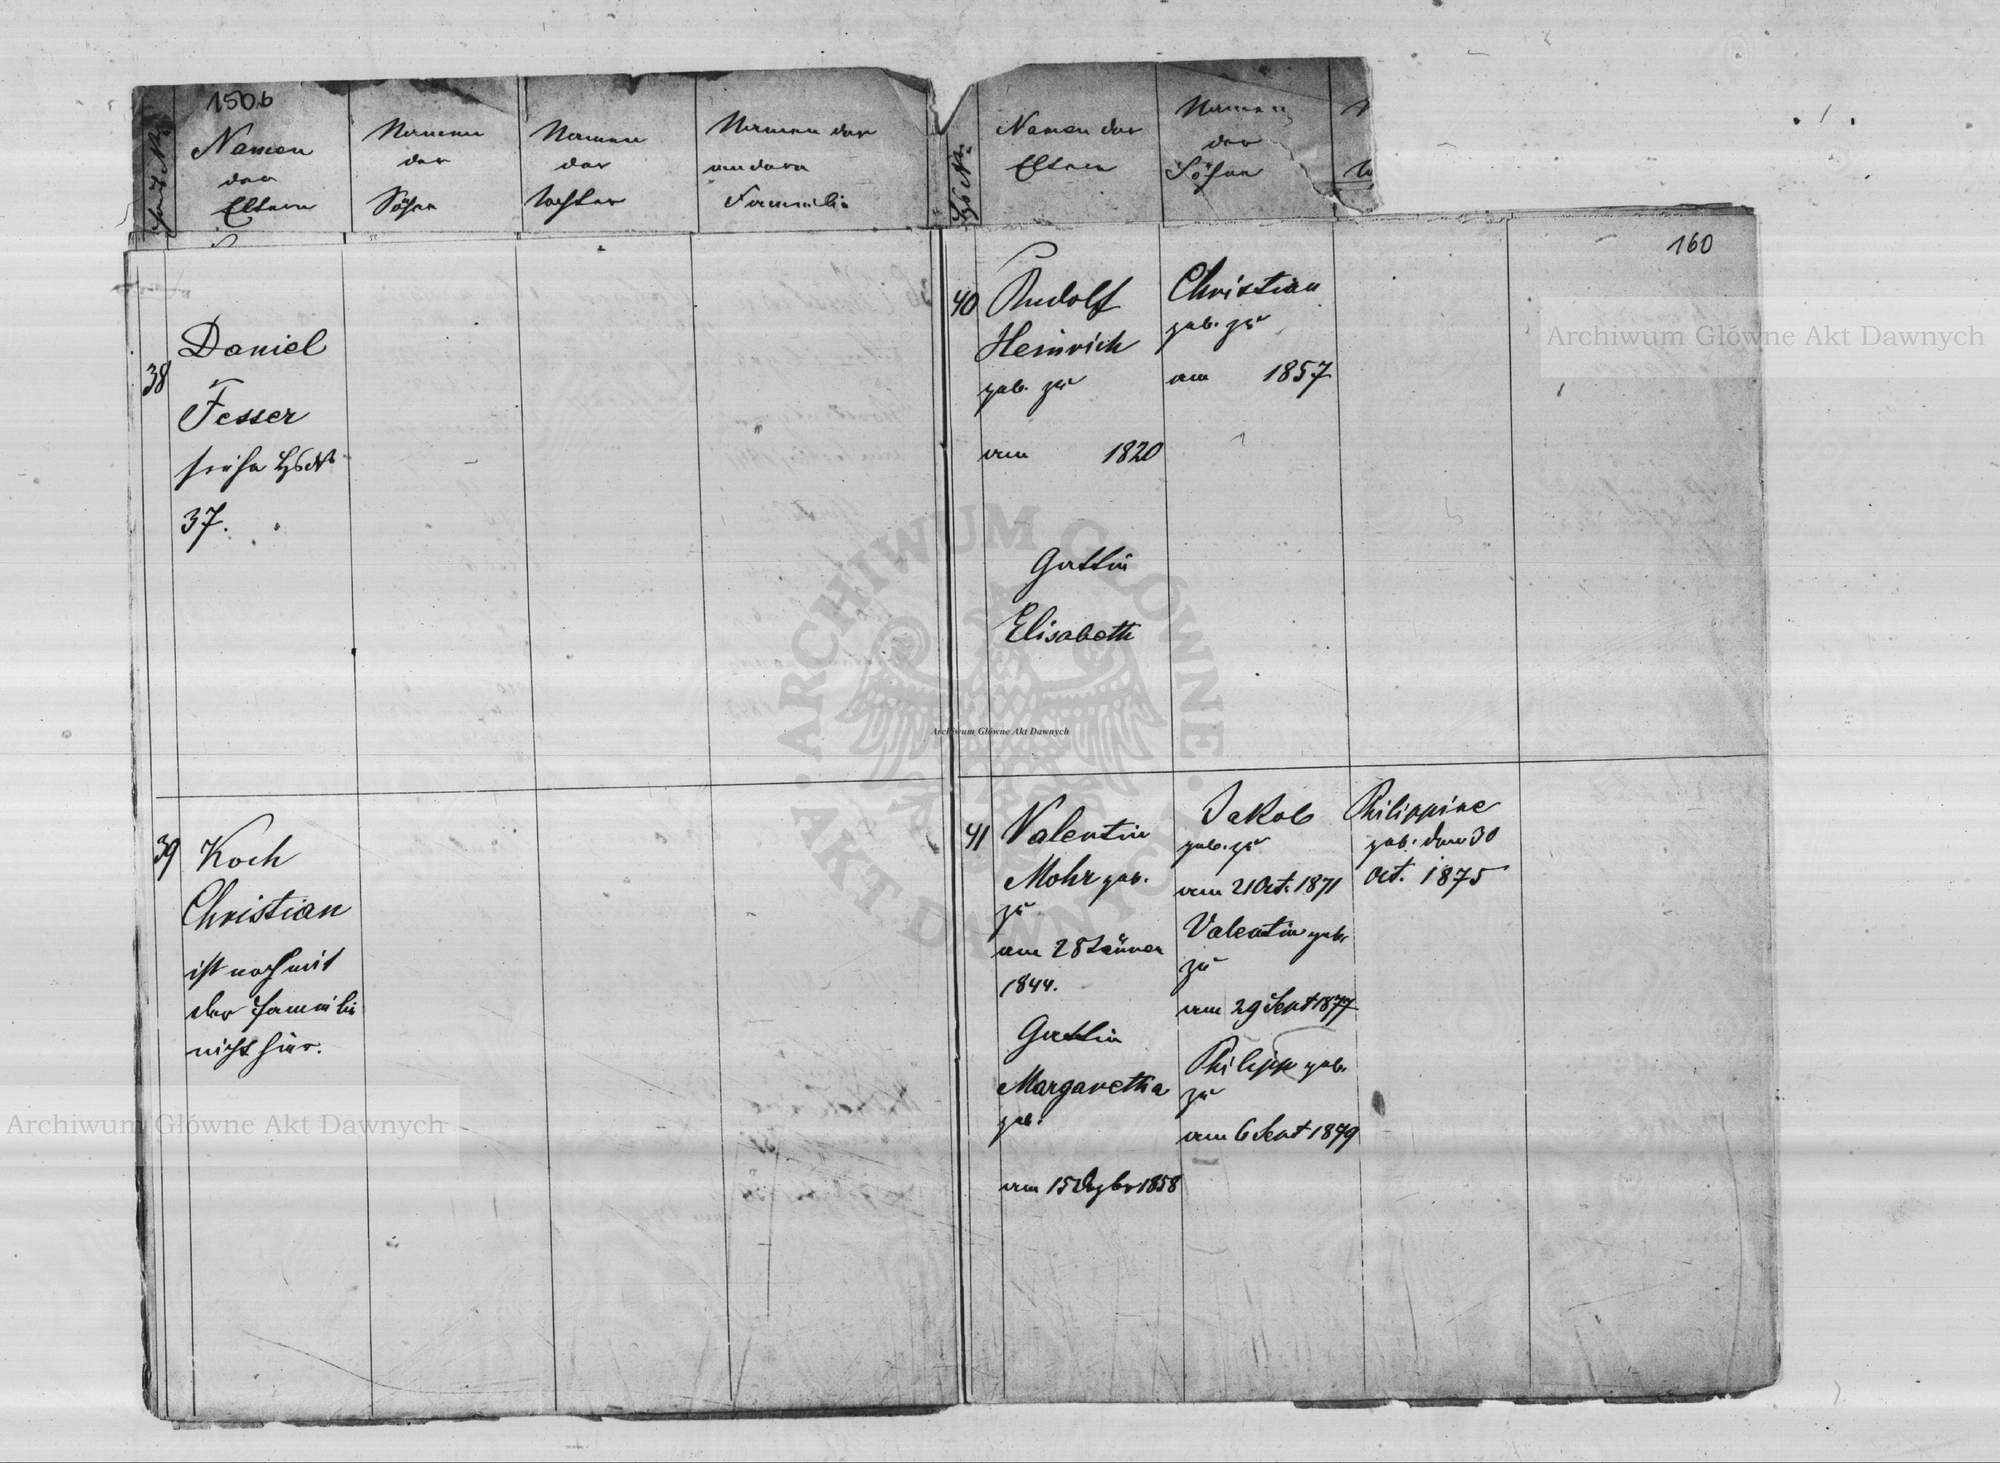 150b
Namen
der
Eltern
Namen
der
Söhne
Namen
der
Töchter
Namen der
andern
Familie
Hs No.
Namen der
Eltern
Namen
der
Söhne
160
38
Daniel
Fesser
siehe Hs No
37.
39
Koch
Christian
ist noch mit
der Familie
nicht hier.
40
Rudolf
Heinrich
geb. zu
am 1820
Gattin
Elisabeth
Christian
geb. zu
am 1857
41
Valentin
Mohr geb.
zu
am 28 Jänner
1844.
Gattin
Margaretha
geb.
am 15 Dezbr 1858
Jakob
geb. zu
am 21 Oct. 1871
Valentin geb.
zu
am 29 Sept 1877
Philipp geb.
zu
am 6 Sept 1879
Philippine
geb. den 30
Oct. 1875
Archiwum Główne Akt Dawnych
ARCHIWUM GŁÓWNE AKT DAWNYCH
Archiwum Główne Akt Dawnych
Archiwum Główne Akt Dawnych